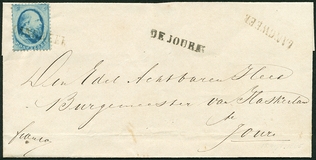 DE JOURE
LANGWEER
Den Edel Achtbaren Heer
Burgemeester van Haskerland
te
franco
Joure